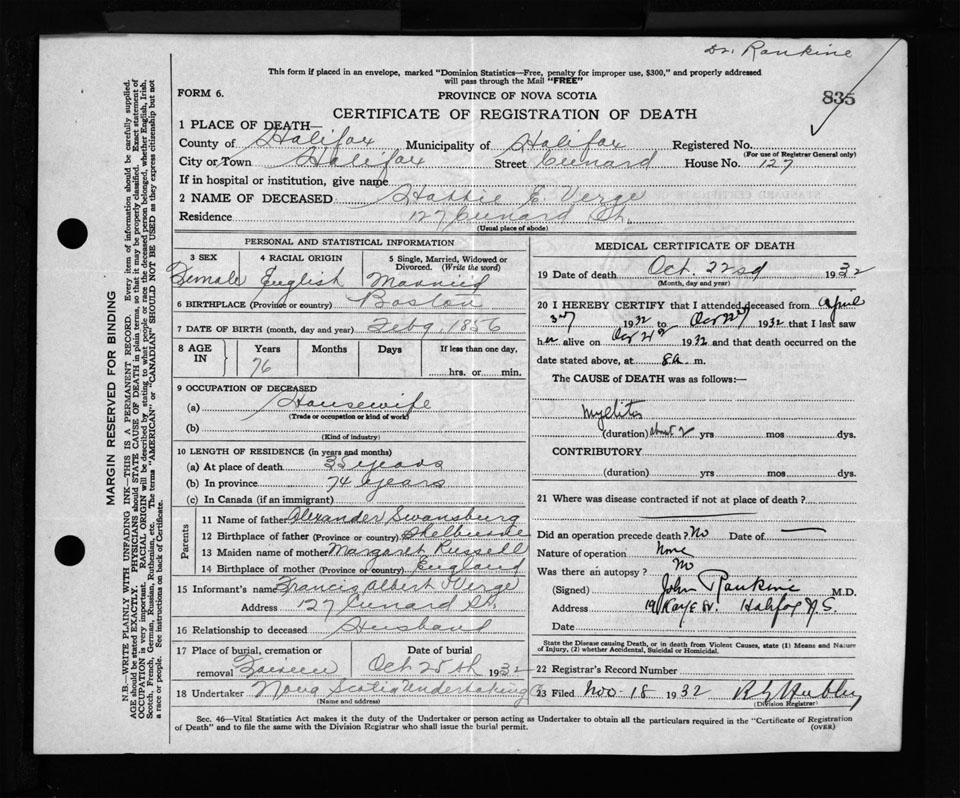 Dr. Rankine
This form if placed in an envelope, marked "Dominion Statistics—Free, penalty for improper use, $300," and properly addressed
will pass through the Mail "FREE"
FORM 6.
PROVINCE OF NOVA SCOTIA
835
CERTIFICATE OF REGISTRATION OF DEATH
1 PLACE OF DEATH—
County of Halifax Municipality of Halifax Registered No.
(For use of Registrar General only)
City or Town Halifax Street Cunard House No. 127
If in hospital or institution, give name
2 NAME OF DECEASED Hattie E. Verge
Residence 127 Cunard St.
(Usual place of abode)
PERSONAL AND STATISTICAL INFORMATION
3 SEX 4 RACIAL ORIGIN 5 Single, Married, Widowed or
Divorced. (Write the word)
Female English Married
6 BIRTHPLACE (Province or country) Boston
7 DATE OF BIRTH (month, day and year) Feb 9, 1856
8 AGE IN Years Months Days If less than one day,
76 hrs. or min.
9 OCCUPATION OF DECEASED
(a) Housewife
(Trade or occupation or kind of work)
(b)
(Kind of industry)
10 LENGTH OF RESIDENCE (in years and months)
(a) At place of death 35 years
(b) In province 74 years
(c) In Canada (if an immigrant)
Parents
11 Name of father Alexander Swansburg
12 Birthplace of father (Province or country) Shelburne
13 Maiden name of mother Margaret Russell
14 Birthplace of mother (Province or country) England
15 Informant's name Francis Albert Verge
Address 127 Cunard St.
16 Relationship to deceased Husband
17 Place of burial, cremation or Date of burial
removal Oct 25th 1932
18 Undertaker Nova Scotia Undertaking Co
(Name and address)
MEDICAL CERTIFICATE OF DEATH
19 Date of death Oct. 22nd 1932
(Month, day and year)
20 I HEREBY CERTIFY that I attended deceased from April
3rd 1932 to Oct 22nd 1932 that I last saw
her alive on Oct 21st 1932 and that death occurred on the
date stated above, at 8 a. m.
The CAUSE of DEATH was as follows:—
Myelitis
(duration) about 2 yrs mos dys.
CONTRIBUTORY
(duration) yrs mos dys.
21 Where was disease contracted if not at place of death?
Did an operation precede death? No Date of —
Nature of operation None
Was there an autopsy? No
(Signed) John Rankine M.D.
Address Halifax N.S.
Date
State the Disease causing Death, or in death from Violent Causes, state (1) Means and Nature
of Injury, (2) whether Accidental, Suicidal or Homicidal.
22 Registrar's Record Number
23 Filed Nov-18 1932 Hubley
(Division Registrar)
Sec. 46—Vital Statistics Act makes it the duty of the Undertaker or person acting as Undertaker to obtain all the particulars required in the "Certificate of Registration
of Death" and to file the same with the Division Registrar who shall issue the burial permit.
(OVER)
MARGIN RESERVED FOR BINDING
N.B.—WRITE PLAINLY WITH UNFADING INK—THIS IS A PERMANENT RECORD. Every item of information should be carefully supplied.
AGE should be stated EXACTLY. PHYSICIANS should STATE CAUSE OF DEATH in plain terms, so that it may be properly classified. Exact statement of
OCCUPATION is very important. RACIAL ORIGIN will be described by stating to what people or race the deceased person belonged, whether English, Irish,
Scotch, French, German, Russian, Ruthenian, etc. The terms "AMERICAN" or "CANADIAN" SHOULD NOT BE USED as they express citizenship but not
a race or people. See instructions on back of Certificate.